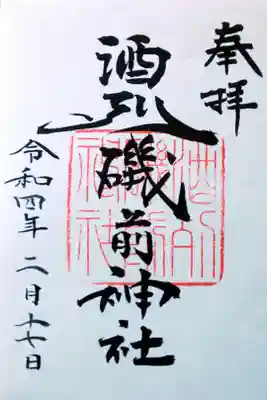 奉拝
酒列磯前神社
令和四年二月十七日